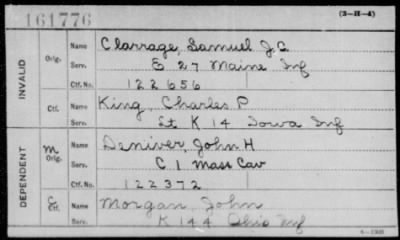 161776 (3-H-4)
INVALID
Orig. Name Clarrage, Samuel J. C
Serv. E 27 Maine Inf
Ctf. No. 122656
Ctf. Name King, Charles P
Serv. Lt K 14 Iowa Inf
DEPENDENT
M Orig. Name Deniver, John H
Serv. C 1 Mass Cav
Ctf. No. 122372
C Ctf. Name Morgan, John
Serv. K 144 Ohio Inf